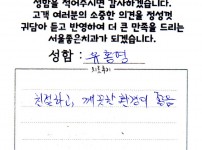 성함을 적어주시면 감사하겠습니다.
고객 여러분의 소중한 의견을 정성껏
귀담아 듣고 반영하여 더 큰 만족을 드리는
서울좋은치과가 되겠습니다.
성함 : 유홍명
친절하고, 깨끗한 환경이 좋음